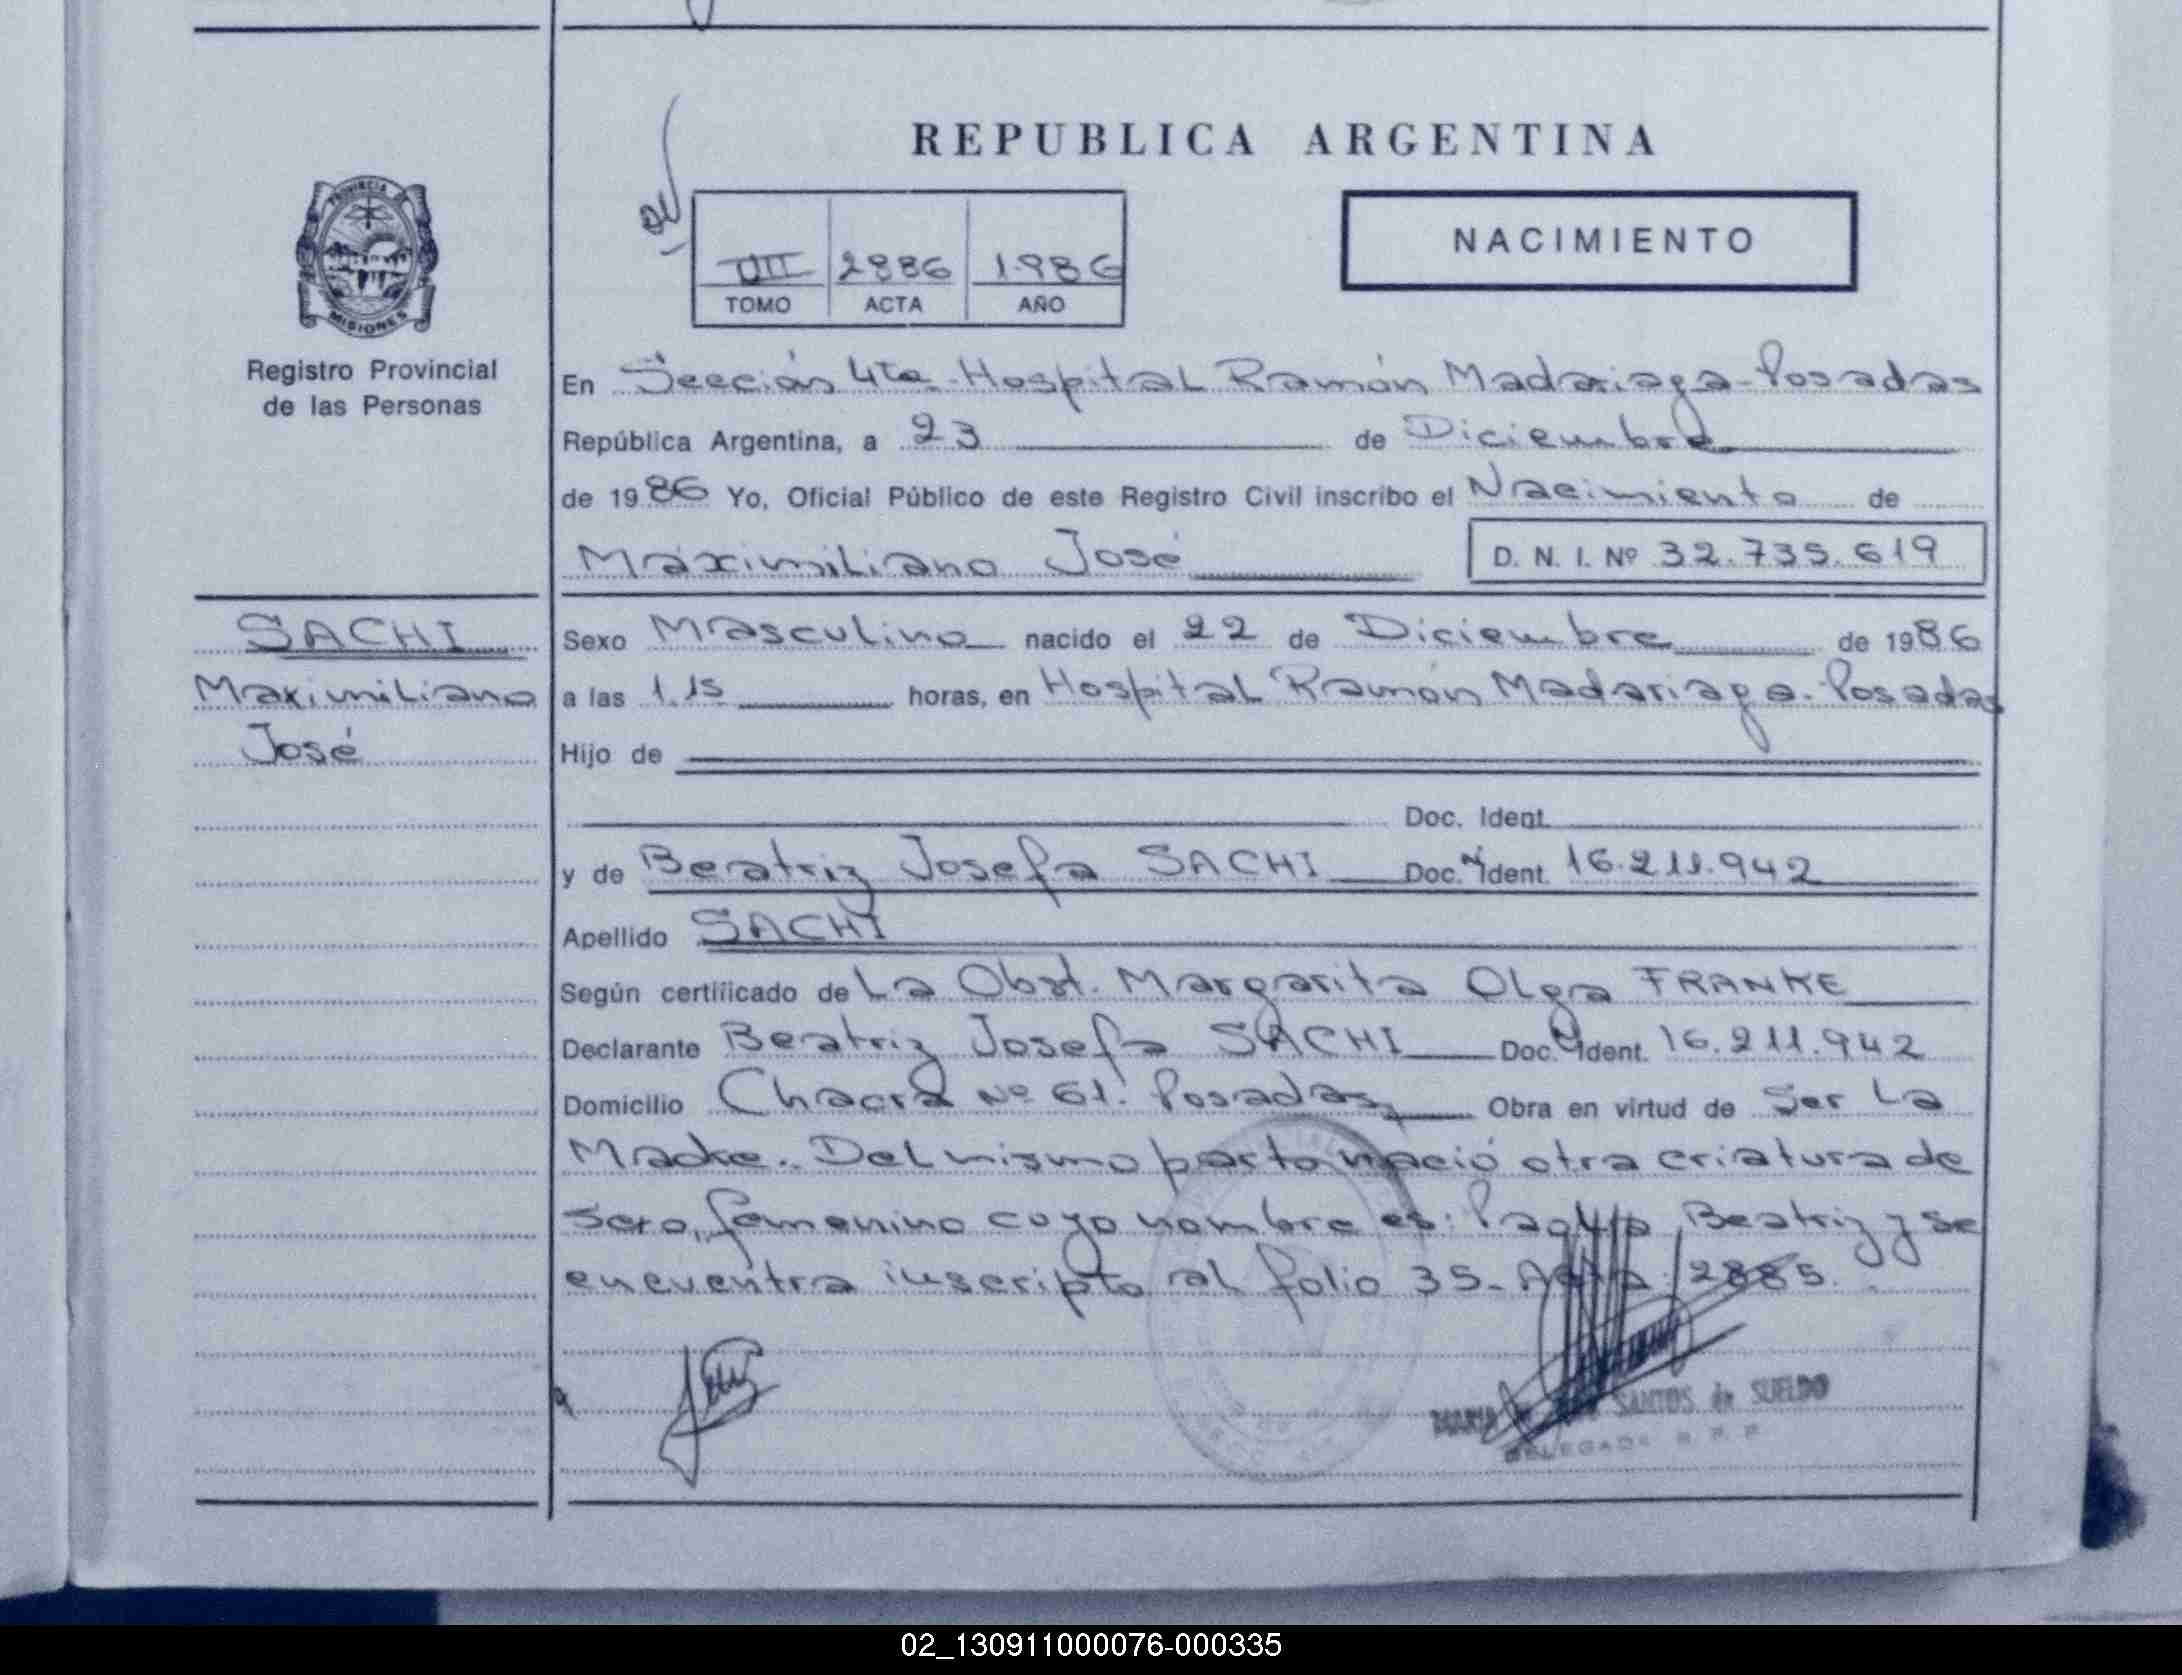 REPUBLICA ARGENTINA
PROVINCIA DE
MISIONES
Registro Provincial
de las Personas
NACIMIENTO
2886 1.986
TOMO ACTA AÑO
En Sección 4ta. Hospital Ramón Madariaga - Posadas
República Argentina, a 23 de Diciembre
de 1986 Yo, Oficial Público de este Registro Civil inscribo el Nacimiento de
Maximiliano José
D. N. I. Nº 32.735.619
SACHI
Maximiliano
José
Sexo Masculino nacido el 22 de Diciembre de 1986
a las 1.15 horas, en Hospital Ramón Madariaga. Posadas
Hijo de
Doc. Ident.
y de Beatriz Josefa SACHI Doc. Ident. 16.211.942
Apellido SACHI
Según certificado de La Obst. Margarita Olga FRANKE
Declarante Beatriz Josefa SACHI Doc. Ident. 16.211.942
Domicilio Chacra Nº 61. Posadas Obra en virtud de Ser La
Madre. Del mismo parto nació otra criatura de
sexo, femenino cuyo nombre es: Beatriz y se
encuentra inscripto al folio 35- Acta 2885.
MARIA SANTOS de SUELDO
DELEGADA R. P. P.
02_130911000076-000335